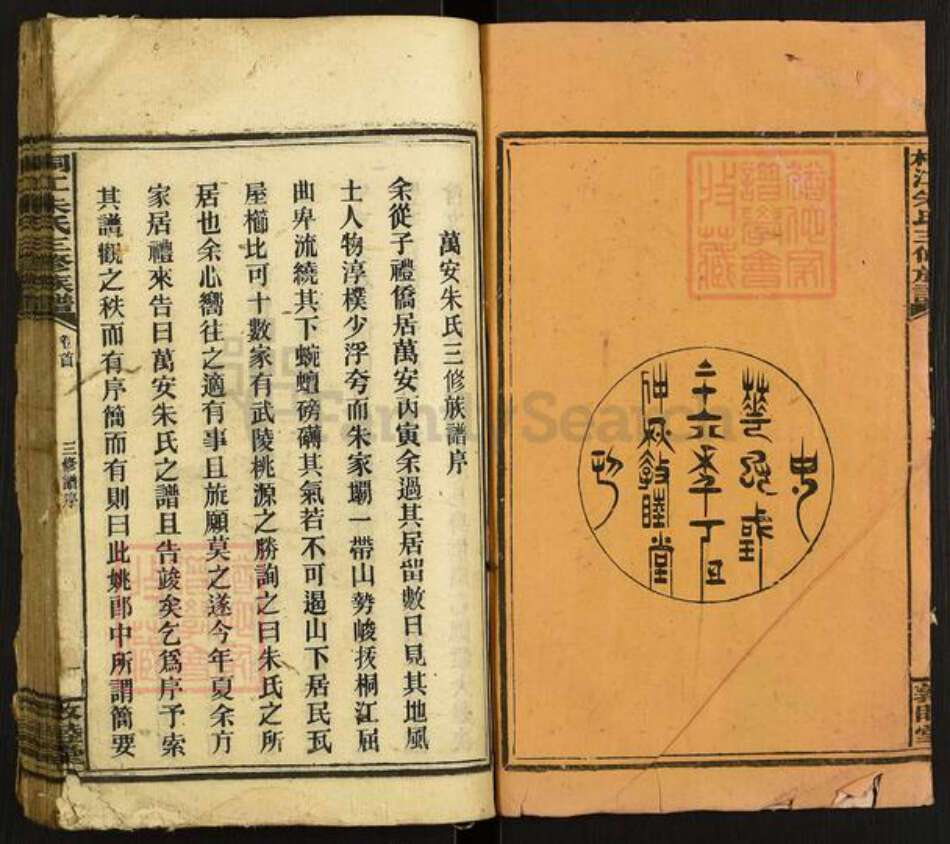 桐江朱氏三修族譜
敦睦堂
中華民國
二十六年丁丑
仲秋敦睦堂
刊
萬安朱氏三修族譜序
余從子禮僑居萬安丙寅余過其居留數日見其地風
土人物淳樸少浮夸而朱家壩一帶山勢峻拔桐江屈
曲卑流繞其下蜿蟺磅礴其氣若不可遏山下居民瓦
屋櫛比可十數家有武陵桃源之勝詢之曰朱氏之所
居也余心嚮往之適有事且旋願莫之遂今年夏余方
家居禮來告曰萬安朱氏之譜且告竣矣乞爲序予索
其譜觀之秩而有序簡而有則曰此姚郎中所謂簡要
桐江朱氏三修族譜
卷首
三修譜序
敦睦堂
FamilySearch